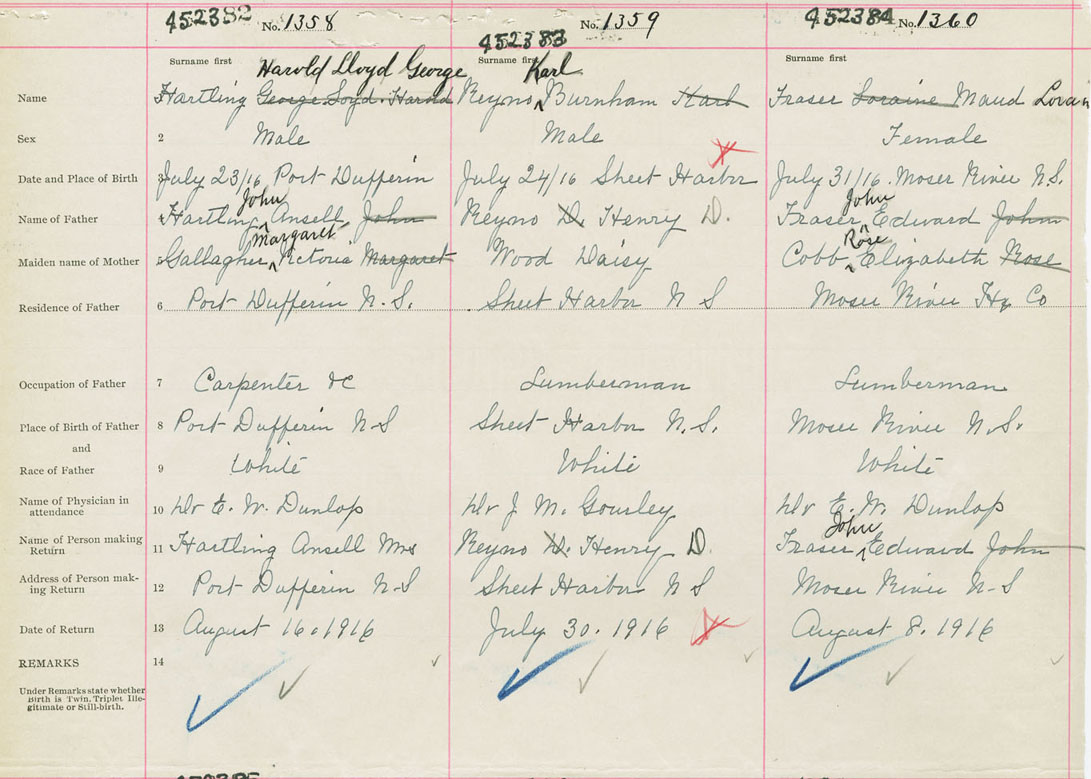 452382 No. 1358 452383 No. 1359 452384 No. 1360
Surname first Surname first Surname first
Harold Lloyd George Karl
Name 1 Hartling George Loyd Harold Reyno Burnham Karl Fraser Loraine Maud Lorain
Sex 2 Male Male Female
Date and Place of Birth 3 July 23/16 Port Dufferin July 24/16 Sheet Harbor July 31/16. Moser River N.S.
John John
Name of Father Hartling Ansell John Reyno D. Henry D. Fraser Edward John
Margaret Rose
Maiden name of Mother 5 Gallagher Victoria Margaret Wood Daisy Cobb Elizabeth Rose
Residence of Father 6 Port Dufferin N.S. Sheet Harbor N S Moser River Hx Co
Occupation of Father 7 Carpenter &c Lumberman Lumberman
Place of Birth of Father 8 Port Dufferin N-S Sheet Harbor N.S. Moser River N.S.
and
Race of Father 9 White White White
Name of Physician in
attendance 10 Dr E. W. Dunlop Dr J. M. Gourley Dr E. W. Dunlop
John
Name of Person making
Return 11 Hartling Ansell Mrs Reyno D. Henry D. Fraser Edward John
Address of Person mak-
ing Return 12 Port Dufferin N-S Sheet Harbor N S Moser River N-S
Date of Return 13 August 16. 1916 July 30. 1916 August 8. 1916
REMARKS 14
Under Remarks state whether
Birth is Twin, Triplet Ille-
gitimate or Still-birth.